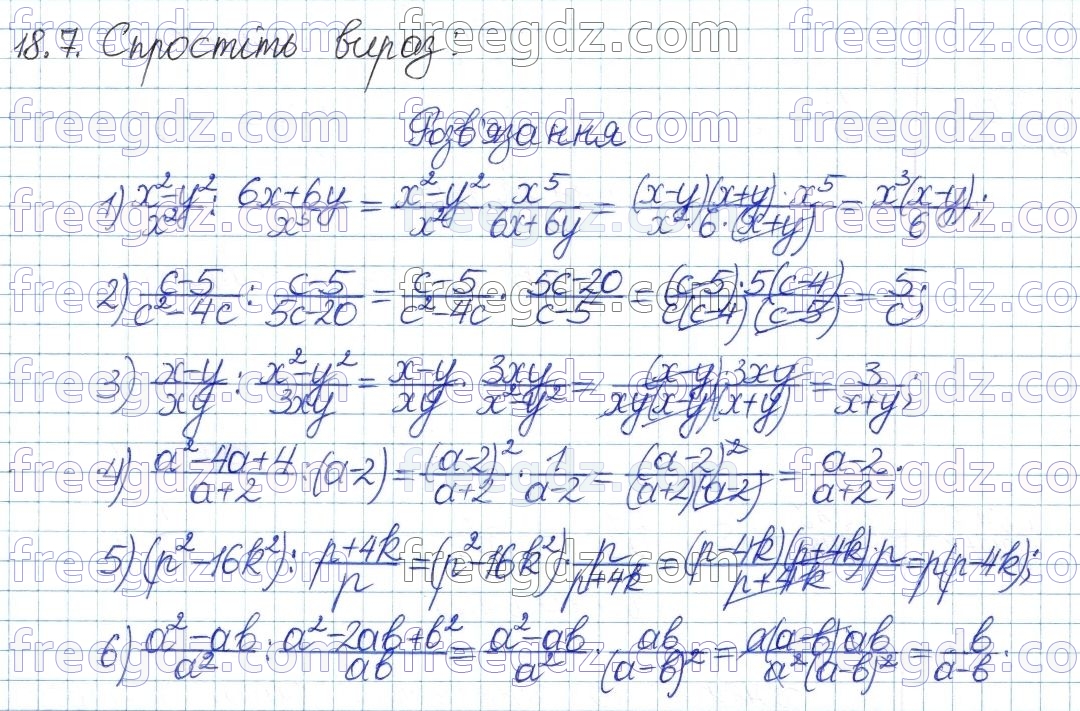 18.7. Спростіть вираз:
Розв'язання
1) \frac{x^2-y^2}{x^2} : \frac{6x+6y}{x^5} = \frac{x^2-y^2}{x^2} · \frac{x^5}{6x+6y} = \frac{(x-y)(x+y)·x^5}{x^2·6·(x+y)} = \frac{x^3(x-y)}{6};
2) \frac{c-5}{c^2-4c} : \frac{c-5}{5c-20} = \frac{c-5}{c^2-4c} · \frac{5c-20}{c-5} = \frac{(c-5)·5(c-4)}{c(c-4)(c-5)} = \frac{5}{c};
3) \frac{x-y}{xy} : \frac{x^2-y^2}{3xy} = \frac{x-y}{xy} · \frac{3xy}{x^2-y^2} = \frac{(x-y)·3xy}{xy(x-y)(x+y)} = \frac{3}{x+y};
4) \frac{a^2-4a+4}{a+2} : (a-2) = \frac{(a-2)^2}{a+2} · \frac{1}{a-2} = \frac{(a-2)^2}{(a+2)(a-2)} = \frac{a-2}{a+2};
5) (p^2-16k^2) : \frac{p+4k}{p} = (p^2-16k^2) · \frac{p}{p+4k} = \frac{(p-4k)(p+4k)·p}{p+4k} = p(p-4k);
6) \frac{a^2-ab}{a^2} : \frac{a^2-2ab+b^2}{ab} = \frac{a^2-ab}{a^2} · \frac{ab}{(a-b)^2} = \frac{a(a-b)·ab}{a^2(a-b)^2} = \frac{b}{a-b}.